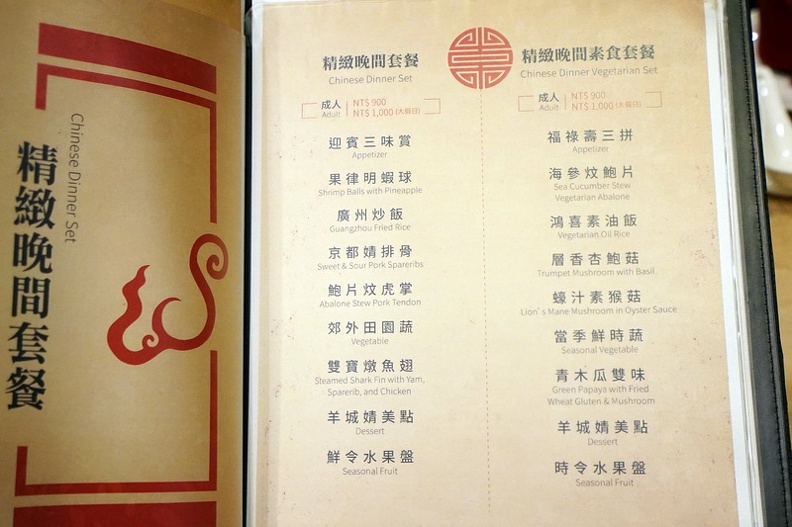 Chinese Dinner Set
精緻晚間套餐
精緻晚間套餐
Chinese Dinner Set
成人
Adult
NT$ 900
NT$ 1,000 (大假日)
迎賓三味賞
Appetizer
果律明蝦球
Shrimp Balls with Pineapple
廣州炒飯
Guangzhou Fried Rice
京都婧排骨
Sweet & Sour Pork Spareribs
鮑片炆虎掌
Abalone Stew Pork Tendon
郊外田園蔬
Vegetable
雙寶燉魚翅
Steamed Shark Fin with Yam,
Sparerib, and Chicken
羊城婧美點
Dessert
鮮令水果盤
Seasonal Fruit
精緻晚間素食套餐
Chinese Dinner Vegetarian Set
成人
Adult
NT$ 900
NT$ 1,000 (大假日)
福祿壽三拼
Appetizer
海參炆鮑片
Sea Cucumber Stew
Vegetarian Abalone
鴻喜素油飯
Vegetarian Oil Rice
層香杏鮑菇
Trumpet Mushroom with Basil
蠔汁素猴菇
Lion's Mane Mushroom in Oyster Sauce
當季鮮時蔬
Seasonal Vegetable
青木瓜雙味
Green Papaya with Fried
Wheat Gluten & Mushroom
羊城婧美點
Dessert
時令水果盤
Seasonal Fruit